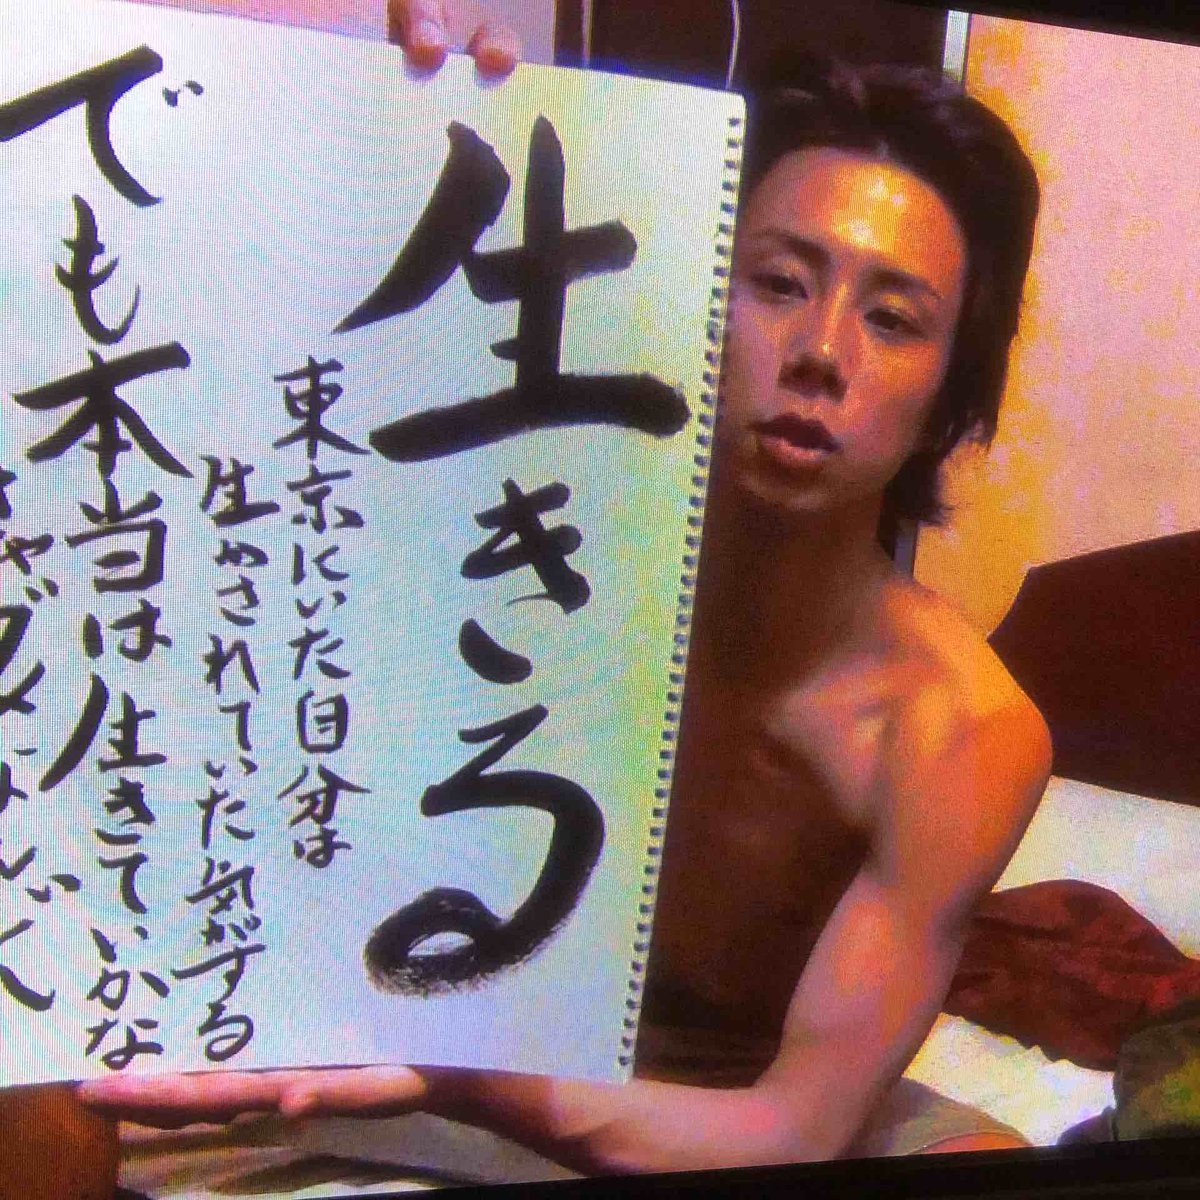 生きる
東京にいた自分は
生かされていた気がする
でも本当は生きていかな
きゃダメ